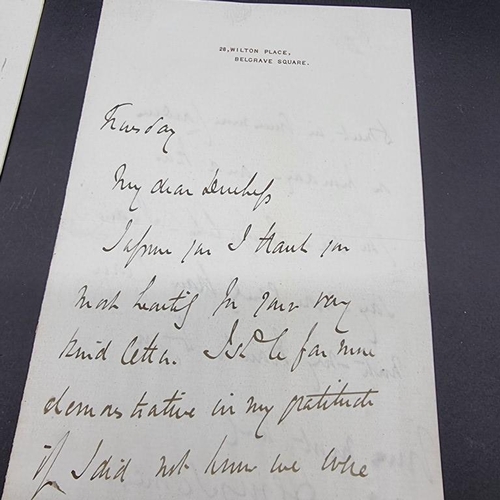 28, WILTON PLACE,
BELGRAVE SQUARE.
Tuesday
My dear Duchess
I assure you I thank you
most heartily for your very
kind letter. I shd. be far more
demonstrative in my gratitude
if I did not know we were